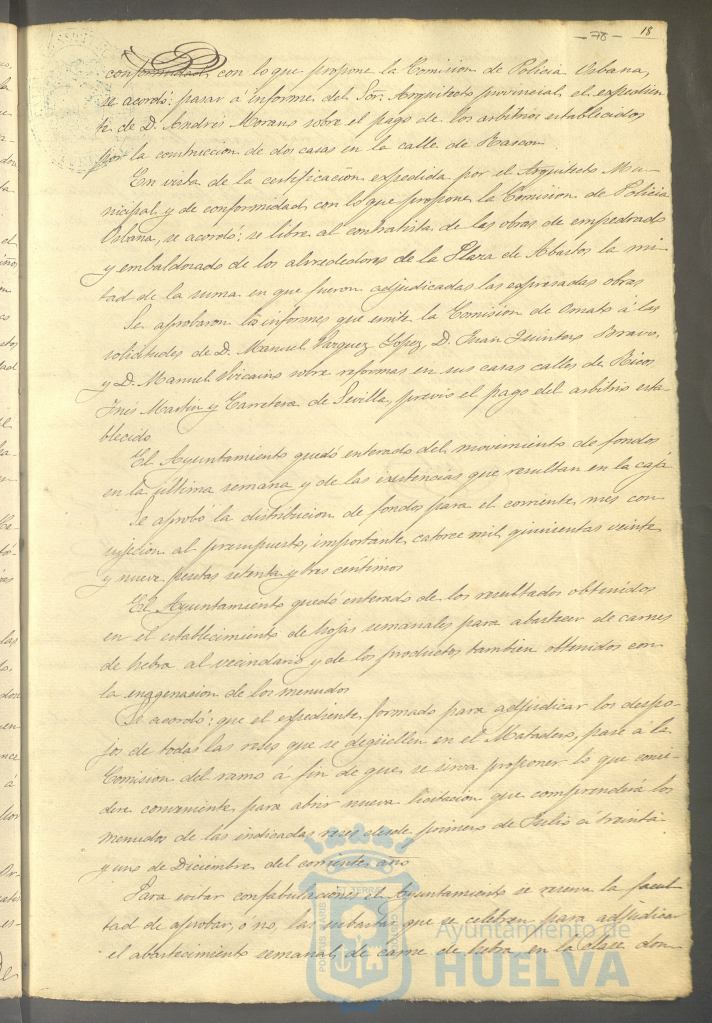 - 78 - 18
conformidad, con lo que propone la Comision de Policia Urbana,
se acordó: pasar á informe del Sor. Arquitecto provincial el expedien-
te de D. Andrés Moraus sobre el pago de los arbitrios establecidos
por la construccion de dos casas en la calle de Rascon.
En vista de la certificacion expedida por el Arquitecto Mu-
nicipal y de conformidad con lo que propone la Comision de Policia
Urbana, se acordó; se libre al contratista de las obras de empedrado
y embaldosado de los alrededores de la Plaza de Abastos la mi-
tad de la suma en que fueron adjudicadas las expresadas obras
Se aprobaron los informes que emite la Comision de Ornato á las
solicitudes de D. Manuel Vazquez Lopez, D. Juan Quintero Bravo,
y D. Manuel Vizcaino sobre reformas en sus casas calles de Ricos
Inés Martin y Carretera de Sevilla, previo el pago del arbitrio esta-
blecido
El Ayuntamiento quedó enterado del movimiento de fondos
en la última semana y de las existencias que resultan en la caja
Se aprobó la distribucion de fondos para el corriente mes con
sujecion al presupuesto, importante catorce mil quinientas veinte
y nueve pesetas setenta y tres centimos
El Ayuntamiento quedó enterado de los resultados obtenidos
en el establecimiento de hojas semanales para abastecer de carnes
de hebra al vecindario y de los productos tambien obtenidos con
la enagenacion de los menudos
Se acordó; que el expediente formado para adjudicar los despo-
jos de todas las reses que se degüellen en el Matadero, pase á la
Comision del ramo á fin de que se sirva proponer lo que consi-
dere conveniente para abrir nueva licitacion que comprenderá los
menudos de las indicadas reses desde primero de Julio á treinta
y uno de Diciembre del corriente año
Para evitar confabulaciones el Ayuntamiento se reserva la facul-
tad de aprobar, ó no, las subastas que se celebren para adjudicar
el abastecimiento semanal de carne de hebra, en la clase don-
Ayuntamiento de
HUELVA